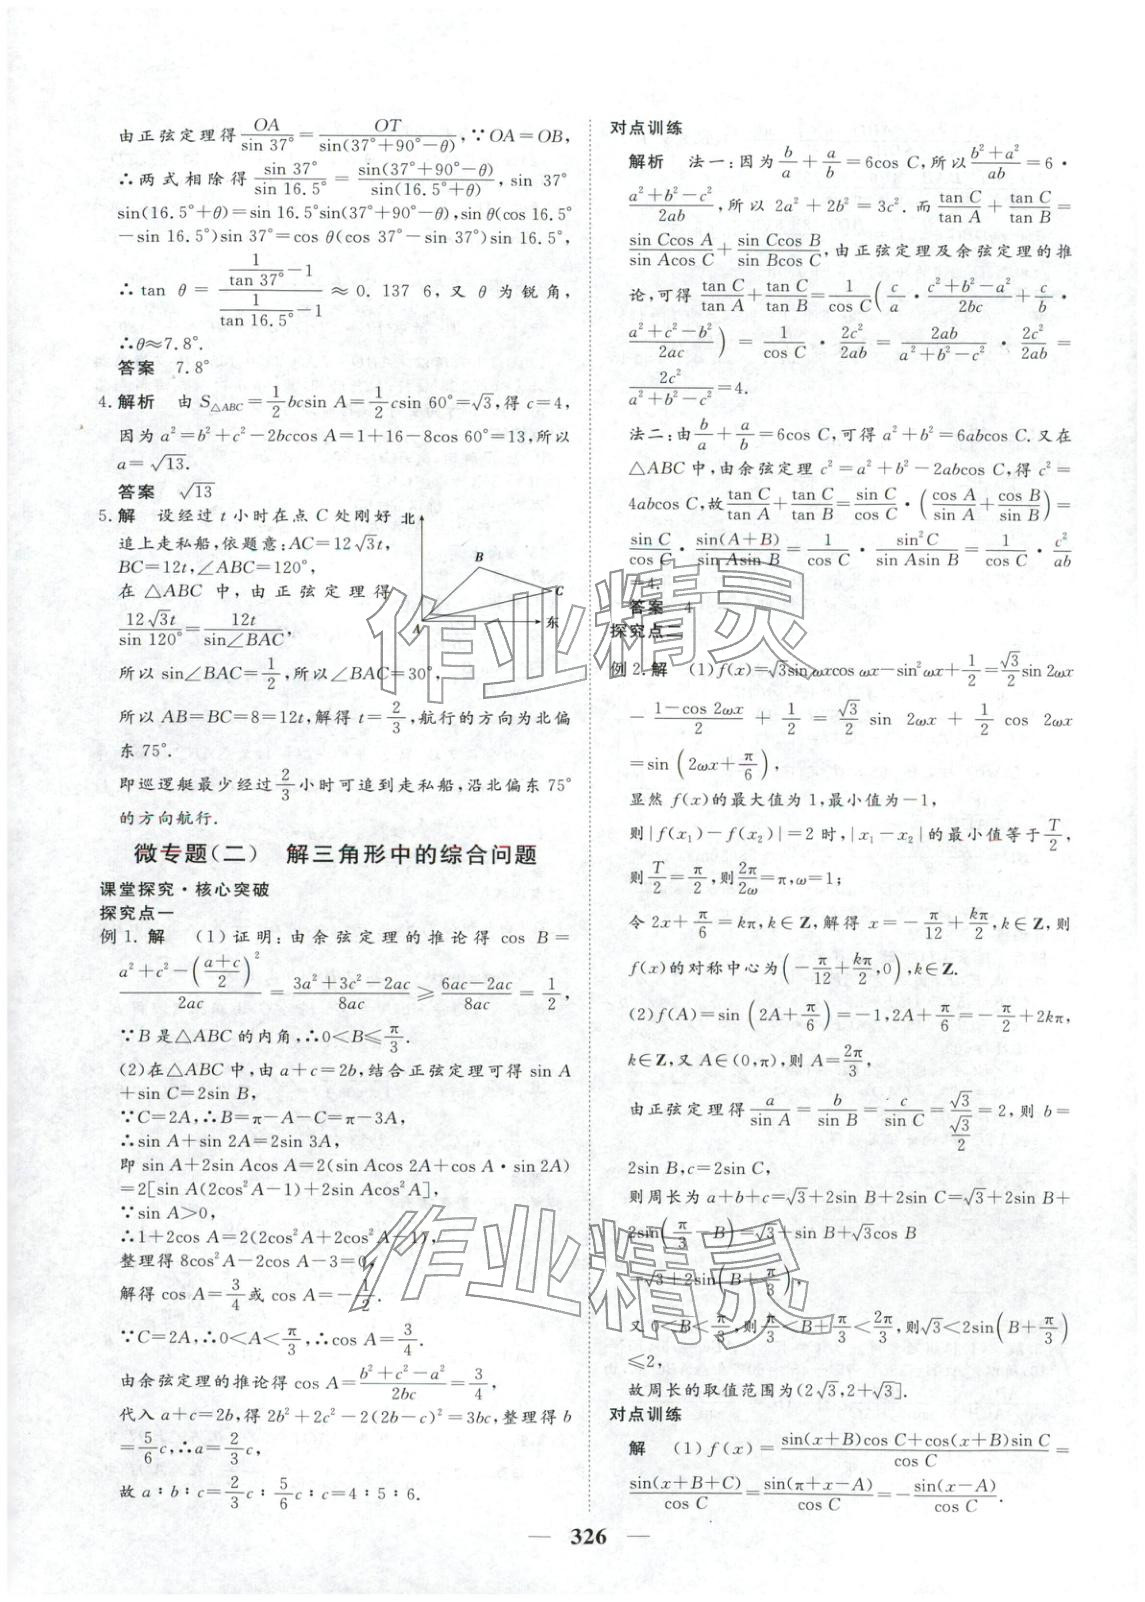 由正弦定理得OA/sin 37°=OT/sin(37°+90°-θ),∵OA=OB,
∴两式相除得sin 37°/sin 16.5°=sin(37°+90°-θ)/sin(16.5°+θ),sin 37°
sin(16.5°+θ)=sin 16.5°sin(37°+90°-θ),sin θ(cos 16.5°
-sin 16.5°)sin 37°=cos θ(cos 37°-sin 37°)sin 16.5°,
∴tan θ=(1/tan 37°-1)/(1/tan 16.5°-1)≈0.137 6,又θ为锐角,
∴θ≈7.8°.
答案 7.8°
4.解析 由S△ABC=1/2bcsin A=1/2csin 60°=√3,得c=4,
因为a²=b²+c²-2bccos A=1+16-8cos 60°=13,所以
a=√13.
答案 √13
5.解 设经过t小时在点C处刚好
追上走私船,依题意:AC=12√3t,
BC=12t,∠ABC=120°,
在△ABC中,由正弦定理得
12√3t/sin 120°=12t/sin∠BAC,
所以sin∠BAC=1/2,所以∠BAC=30°,
北
B
C
A
东
所以AB=BC=8=12t,解得t=2/3,航行的方向为北偏
东75°.
即巡逻艇最少经过2/3小时可追到走私船,沿北偏东75°
的方向航行.
微专题(二) 解三角形中的综合问题
课堂探究·核心突破
探究点一
例1.解 (1)证明:由余弦定理的推论得cos B=
(a²+c²-((a+c)/2)²)/2ac=(3a²+3c²-2ac)/8ac≥(6ac-2ac)/8ac=1/2,
∵B是△ABC的内角,∴0<B≤π/3.
(2)在△ABC中,由a+c=2b,结合正弦定理可得sin A
+sin C=2sin B,
∵C=2A,∴B=π-A-C=π-3A,
∴sin A+sin 2A=2sin 3A,
即sin A+2sin Acos A=2(sin Acos 2A+cos A·sin 2A)
=2[sin A(2cos²A-1)+2sin Acos²A],
∵sin A>0,
∴1+2cos A=2(2cos²A+2cos²A-1),
整理得8cos²A-2cos A-3=0,
解得cos A=3/4或cos A=-1/2.
∵C=2A,∴0<A<π/3,∴cos A=3/4.
由余弦定理的推论得cos A=(b²+c²-a²)/2bc=3/4,
代入a+c=2b,得2b²+2c²-2(2b-c)²=3bc,整理得b
=5/6c,∴a=2/3c,
故a∶b∶c=2/3c∶5/6c∶c=4∶5∶6.
对点训练
解析 法一:因为b/a+a/b=6cos C,所以(b²+a²)/ab=6·
(a²+b²-c²)/2ab,所以2a²+2b²=3c².而tan C/tan A+tan C/tan B=
sin Ccos A/sin Acos C+sin Ccos B/sin Bcos C,由正弦定理及余弦定理的推
论,可得tan C/tan A+tan C/tan B=1/cos C(c/a·(c²+b²-a²)/2bc+c/b·
(a²+c²-b²)/2ac)=1/cos C·2c²/2ab=2ab/(a²+b²-c²)·2c²/2ab=
2c²/(a²+b²-c²)=4.
法二:由b/a+a/b=6cos C,可得a²+b²=6abcos C.又在
△ABC中,由余弦定理c²=a²+b²-2abcos C,得c²=
4abcos C,故tan C/tan A+tan C/tan B=sin C/cos C·(cos A/sin A+cos B/sin B)=
sin C/cos C·sin(A+B)/sin Asin B=1/cos C·sin²C/sin Asin B=1/cos C·c²/ab
=4.
答案 4
探究点二
例2.解 (1)f(x)=√3sin ωxcos ωx-sin²ωx+1/2=√3/2sin 2ωx
-(1-cos 2ωx)/2+1/2=√3/2 sin 2ωx+1/2 cos 2ωx
=sin(2ωx+π/6),
显然f(x)的最大值为1,最小值为-1,
则|f(x₁)-f(x₂)|=2时,|x₁-x₂|的最小值等于T/2,
则T/2=π/2,则2π/2ω=π,ω=1;
令2x+π/6=kπ,k∈Z,解得x=-π/12+kπ/2,k∈Z,则
f(x)的对称中心为(-π/12+kπ/2,0),k∈Z.
(2)f(A)=sin(2A+π/6)=-1,2A+π/6=-π/2+2kπ,
k∈Z,又A∈(0,π),则A=2π/3,
由正弦定理得a/sin A=b/sin B=c/sin C=√3/(√3/2)=2,则b=
2sin B,c=2sin C,
则周长为a+b+c=√3+2sin B+2sin C=√3+2sin B+
2sin(π/3-B)=√3+sin B+√3cos B
=√3+2sin(B+π/3),
又0<B<π/3,则π/3<B+π/3<2π/3,则√3<2sin(B+π/3)
≤2,
故周长的取值范围为(2√3,2+√3].
对点训练
解 (1)f(x)=(sin(x+B)cos C+cos(x+B)sin C)/cos C=
sin(x+B+C)/cos C=sin(π+x-A)/cos C=-sin(x-A)/cos C.
— 326 —
作业精灵
作业精灵